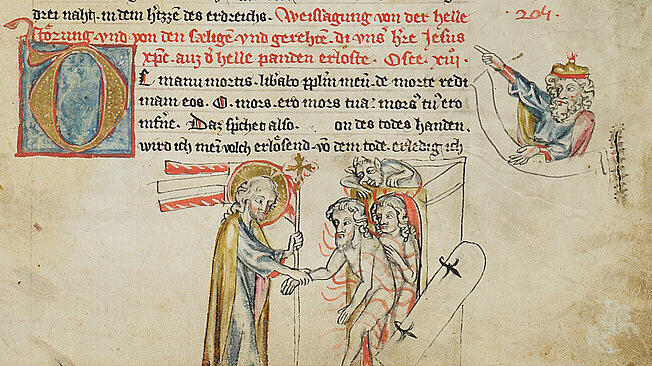 drei naht. in dem hertzzen des erdreichs. Weissagung von der helle
störung. vnd von den sæligen. vnd gerehten. di vns h're Jesus
xp̄c. auz d' helle panden erloste. Osee. xiii.
204.
De manu mortis. lib'abo pp̄lm meū. de morte redi
mam eos. O. mors. ero mors tua. mors' tu' ero
inf'ne. Daz sp'ichet also. on des todes handen.
wird ich mein volch erlösend. vō dem tode. erledig ich